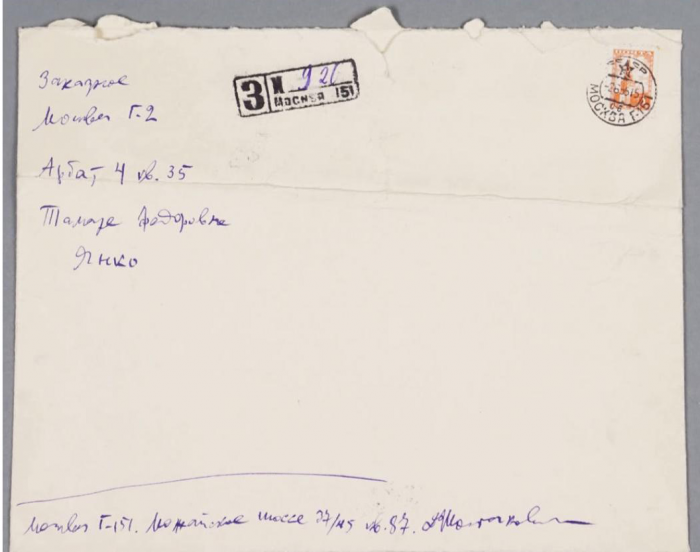 Заказное
З М 926
Москва 151
МОСКВА Г-151
Москва Г-2
Арбат, 4 кв. 35
Тамаре Федоровне
Янко
Москва Г-151. Можайское шоссе 37/45 кв. 87. ДШостакович